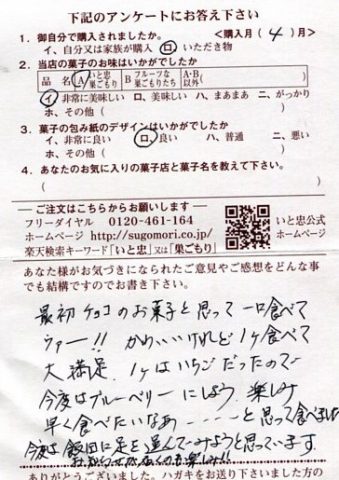 下記のアンケートにお答え下さい
1. 御自分で購入されましたか。 〈購入月( 4 )月〉
イ、自分又は家族が購入 ロ、いただき物
2. 当店の菓子のお味はいかがでしたか
品 名 A いと忠巣ごもり B フルーツな巣ごもりたち A・B以外( )
イ、非常に美味しい ロ、美味しい ハ、まあまあ ニ、がっかり
ホ、その他( )
3. 菓子の包み紙のデザインはいかがでしたか
イ、非常に良い ロ、良い ハ、普通 ニ、悪い
ホ、その他( )
4. あなたのお気に入りの菓子店と菓子名を教えて下さい。
( )
ご注文はこちらからお願いします
フリーダイヤル 0120-461-164
ホームページ http://sugomori.co.jp/
楽天検索キーワード「いと忠」又は「巣ごもり」
いと忠公式
ホームページ
あなた様がお気づきになられたご意見やご感想をどんな事
でも結構ですのでお書き下さい。
最初チョコのお菓子と思って一口食べて
ウァー!! かわいいけれど1ヶ食べて
大満足. 1ヶはいちごだったので
今度はブルーベリーにしよう. 楽しみ
早く食べたいなあ----と思って食べました
今度は飯田に足を運んでみようと思っています
ありがとうございました。ハガキをお送り下さいました方の